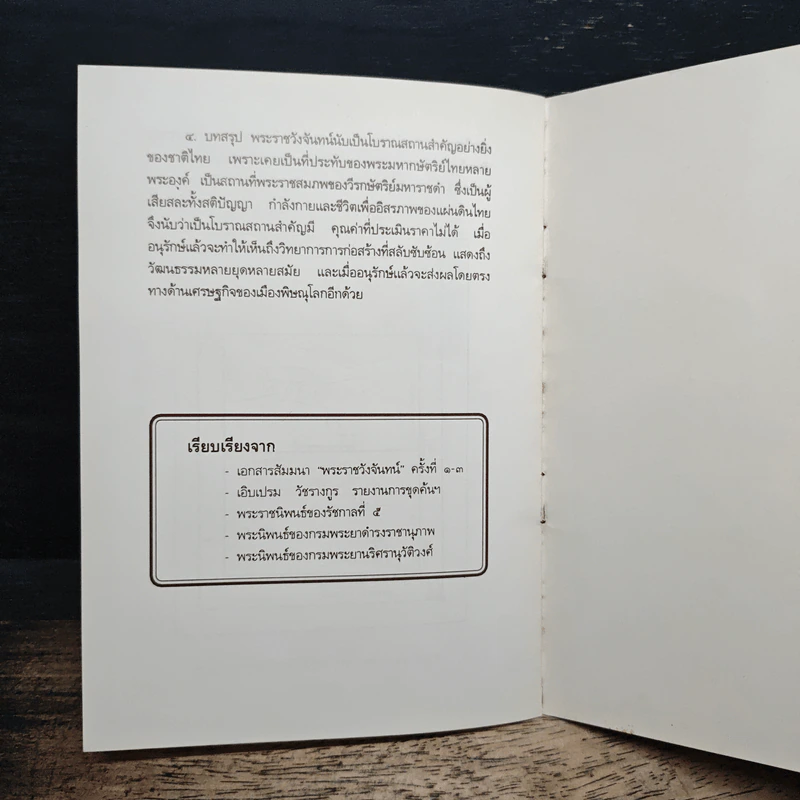 ๔. บทสรุป พระราชวังจันทน์นับเป็นโบราณสถานสำคัญอย่างยิ่ง
ของชาติไทย เพราะเคยเป็นที่ประทับของพระมหากษัตริย์ไทยหลาย
พระองค์ เป็นสถานที่พระราชสมภพของวีรกษัตริย์มหาราชดำ ซึ่งเป็นผู้
เสียสละทั้งสติปัญญา กำลังกายและชีวิตเพื่ออิสรภาพของแผ่นดินไทย
จึงนับว่าเป็นโบราณสถานสำคัญมี คุณค่าที่ประเมินราคาไม่ได้ เมื่อ
อนุรักษ์แล้วจะทำให้เห็นถึงวิทยาการการก่อสร้างที่สลับซับซ้อน แสดงถึง
วัฒนธรรมหลายยุคหลายสมัย และเมื่ออนุรักษ์แล้วจะส่งผลโดยตรง
ทางด้านเศรษฐกิจของเมืองพิษณุโลกอีกด้วย
เรียบเรียงจาก
- เอกสารสัมมนา "พระราชวังจันทน์" ครั้งที่ ๑-๓
- เอิบเปรม วัชรางกูร รายงานการขุดค้นฯ
- พระราชนิพนธ์ของรัชกาลที่ ๕
- พระนิพนธ์ของกรมพระยาดำรงราชานุภาพ
- พระนิพนธ์ของกรมพระยานริศรานุวัติวงศ์